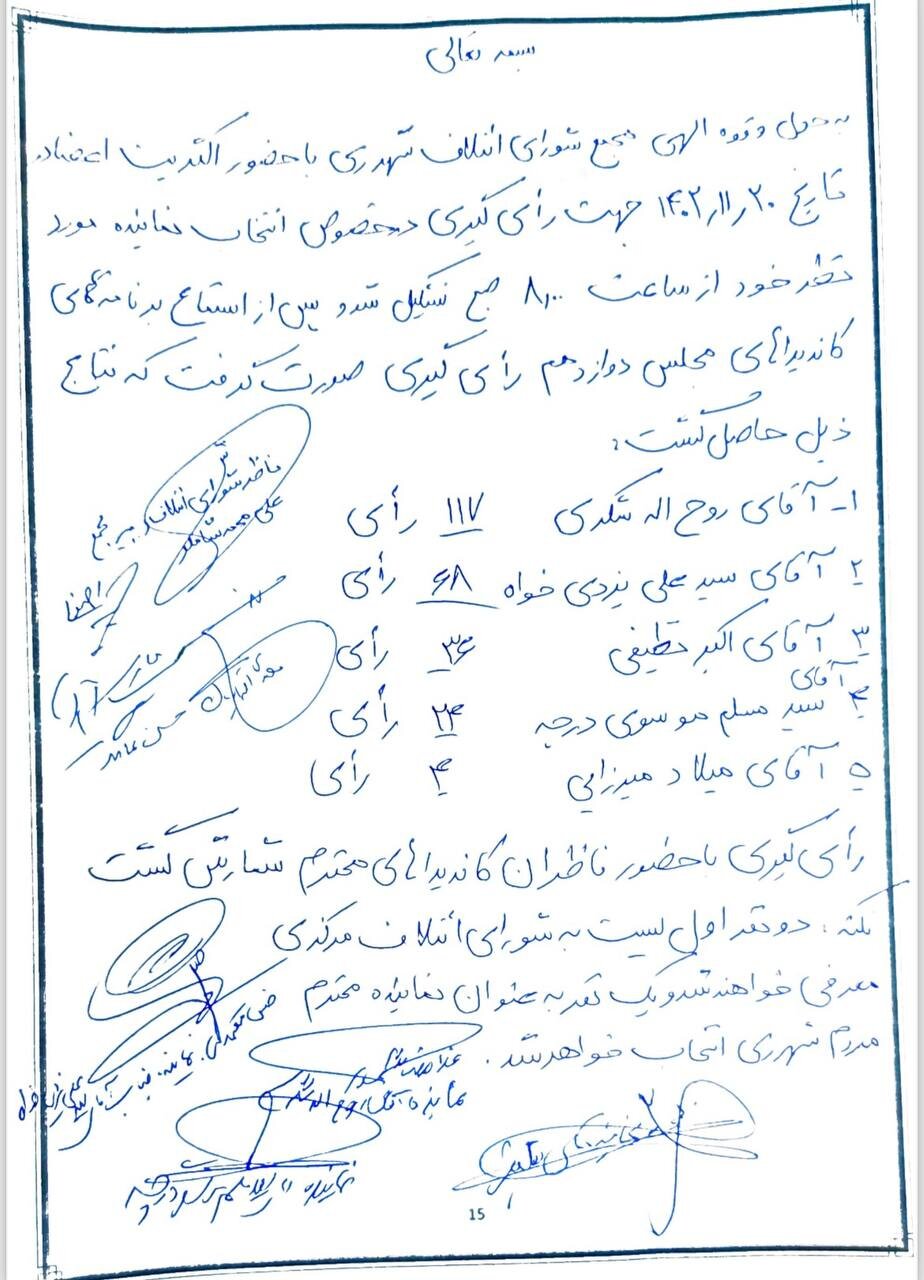 بسمه تعالی
به حول و قوه الهی مجمع شورای ائتلاف شهرری با حضور اکثریت اعضاء در
تاریخ ۱۴۰۲/۱۱/۲۰ جهت رأی گیری درخصوص انتخاب نماینده مورد
نظر خود از ساعت ۸:۰۰ صبح تشکیل شد و پس از استماع برنامه های
کاندیداهای مجلس دوازدهم رأی گیری صورت گرفت که نتایج
ذیل حاصل گشت:
۱- آقای روح اله شگری ۱۱۷ رأی
۲ آقای سید علی یزدی خواه ۶۸ رأی
۳ آقای اکبر نظیفی ۳۶ رأی
۴ آقای سید مسلم موسوی درچه ۲۴ رأی
۵ آقای میلاد میرزایی ۴ رأی
ناظر شورای ائتلاف
رأی گیری با حضور ناظران کاندیداهای محترم شمارش گشت
نکته: دو نفر اول لیست به شورای ائتلاف مرکزی
معرفی خواهند شد و یک نفر به عنوان نماینده محترم
مردم شهرری انتخاب خواهد شد.
نماینده آقای روح اله
15